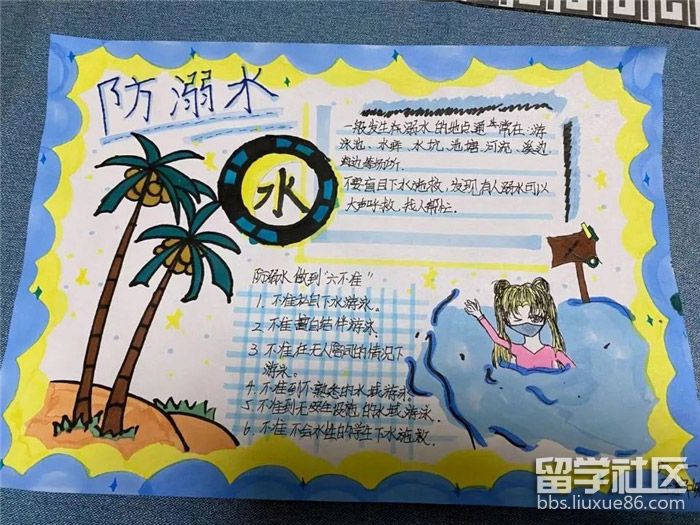 防溺水
水
一般发生在溺水的地点通常在:游
泳池、水库、水坑、池塘、河流、溪边
海边等场所。
不要盲目下水施救,发现有人溺水可以
大声呼救,找人帮忙。
防溺水做到"六不准"
1、不准私自下水游泳。
2、不准擅自结伴游泳。
3、不准在无人陪同的情况下
游泳。
4、不准到不熟悉的水域游泳。
5、不准到无安全设施的水域游泳。
6、不准不会水性的学生下水施救。
留学社区
bbs.liuxue86.com